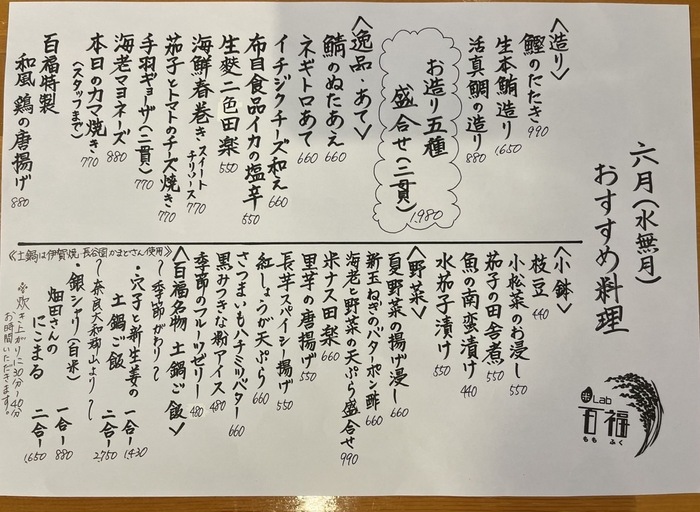 六月(水無月)
おすすめ料理
米Lab
百福
ももふく
<造り>
鰹のたたき 990
生本鮪造り 1,650
活真鯛の造り 880
お造り五種
盛合せ(二貫) 1,980
<逸品・あて>
鯖のぬたあえ 660
ネギトロあて 660
イチジクチーズ和え 660
布目食品イカの塩辛 550
生麩二色田楽 550
海鮮春巻き スイートチリソース 770
茄子とトマトのチーズ焼き 770
手羽ギョーザ(二貫) 770
海老マヨネーズ 880
本日のカマ焼き 770
(スタッフまで)
百福特製
和風鶏の唐揚げ 880
<小鉢>
枝豆 440
小松菜のお浸し 550
茄子の田舎煮 550
魚の南蛮漬け 440
水茄子漬け 550
<野菜>
夏野菜の揚げ浸し 660
新玉ねぎのバターポン酢 660
海老と野菜の天ぷら盛合せ 990
米ナス田楽 660
里芋の唐揚げ 550
長芋スパイシー揚げ 550
紅しょうが天ぷら 660
さつまいもハチミツバター 660
黒みつきな粉アイス 480
季節のフルーツゼリー 480
<百福名物 土鍋ご飯>
《土鍋は伊賀焼 長谷園かまどさん使用》
〜季節がわり〜
・穴子と新生姜の
土鍋ご飯
一合ー 1,430
二合ー 2,750
〜奈良大和郡山より〜
・銀シャリ(白米)
畑田さんの
にこまる
一合ー 880
二合ー 1,650
※炊き上がりに30分〜40分
お時間いただきます。